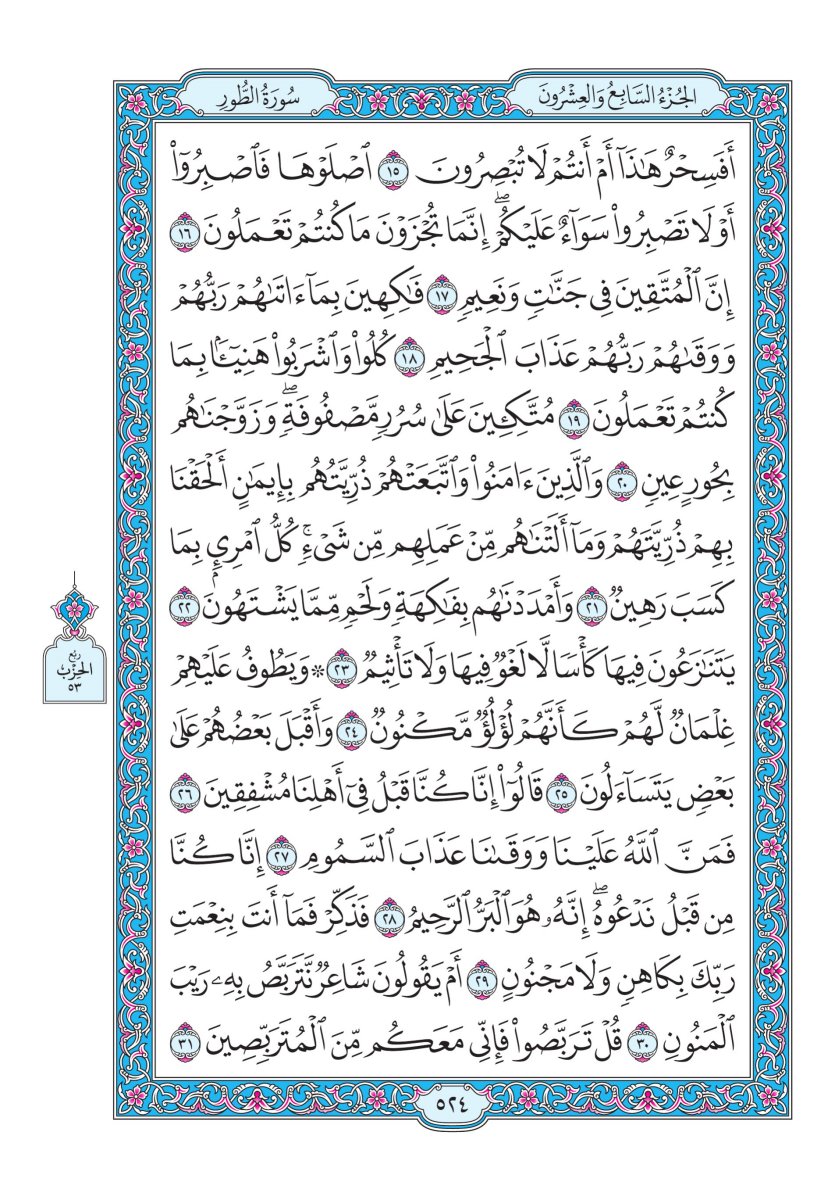 الجُزْءُ السَّابِعُ وَالعِشْرُونَ
سُورَةُ الطُّورِ
أَفَسِحْرٌ هَٰذَآ أَمْ أَنتُمْ لَا تُبْصِرُونَ ١٥ ٱصْلَوْهَا فَٱصْبِرُوٓا۟
أَوْ لَا تَصْبِرُوا۟ سَوَآءٌ عَلَيْكُمْ ۖ إِنَّمَا تُجْزَوْنَ مَا كُنتُمْ تَعْمَلُونَ ١٦
إِنَّ ٱلْمُتَّقِينَ فِى جَنَّٰتٍ وَنَعِيمٍ ١٧ فَٰكِهِينَ بِمَآ ءَاتَىٰهُمْ رَبُّهُمْ
وَوَقَىٰهُمْ رَبُّهُمْ عَذَابَ ٱلْجَحِيمِ ١٨ كُلُوا۟ وَٱشْرَبُوا۟ هَنِيٓـًٔۢا بِمَا
كُنتُمْ تَعْمَلُونَ ١٩ مُتَّكِـِٔينَ عَلَىٰ سُرُرٍ مَّصْفُوفَةٍ ۖ وَزَوَّجْنَٰهُم
بِحُورٍ عِينٍ ٢٠ وَٱلَّذِينَ ءَامَنُوا۟ وَٱتَّبَعَتْهُمْ ذُرِّيَّتُهُم بِإِيمَٰنٍ أَلْحَقْنَا
بِهِمْ ذُرِّيَّتَهُمْ وَمَآ أَلَتْنَٰهُم مِّنْ عَمَلِهِم مِّن شَىْءٍ ۚ كُلُّ ٱمْرِئٍۭ بِمَا
كَسَبَ رَهِينٌ ٢١ وَأَمْدَدْنَٰهُم بِفَٰكِهَةٍ وَلَحْمٍ مِّمَّا يَشْتَهُونَ ٢٢
يَتَنَٰزَعُونَ فِيهَا كَأْسًا لَّا لَغْوٌ فِيهَا وَلَا تَأْثِيمٌ ٢٣ ۞ وَيَطُوفُ عَلَيْهِمْ
غِلْمَانٌ لَّهُمْ كَأَنَّهُمْ لُؤْلُؤٌ مَّكْنُونٌ ٢٤ وَأَقْبَلَ بَعْضُهُمْ عَلَىٰ
بَعْضٍ يَتَسَآءَلُونَ ٢٥ قَالُوٓا۟ إِنَّا كُنَّا قَبْلُ فِىٓ أَهْلِنَا مُشْفِقِينَ ٢٦
فَمَنَّ ٱللَّهُ عَلَيْنَا وَوَقَىٰنَا عَذَابَ ٱلسَّمُومِ ٢٧ إِنَّا كُنَّا
مِن قَبْلُ نَدْعُوهُ ۖ إِنَّهُۥ هُوَ ٱلْبَرُّ ٱلرَّحِيمُ ٢٨ فَذَكِّرْ فَمَآ أَنتَ بِنِعْمَتِ
رَبِّكَ بِكَاهِنٍ وَلَا مَجْنُونٍ ٢٩ أَمْ يَقُولُونَ شَاعِرٌ نَّتَرَبَّصُ بِهِۦ رَيْبَ
ٱلْمَنُونِ ٣٠ قُلْ تَرَبَّصُوا۟ فَإِنِّى مَعَكُم مِّنَ ٱلْمُتَرَبِّصِينَ ٣١
ربع
الحزب
٥٣
٥٢٤